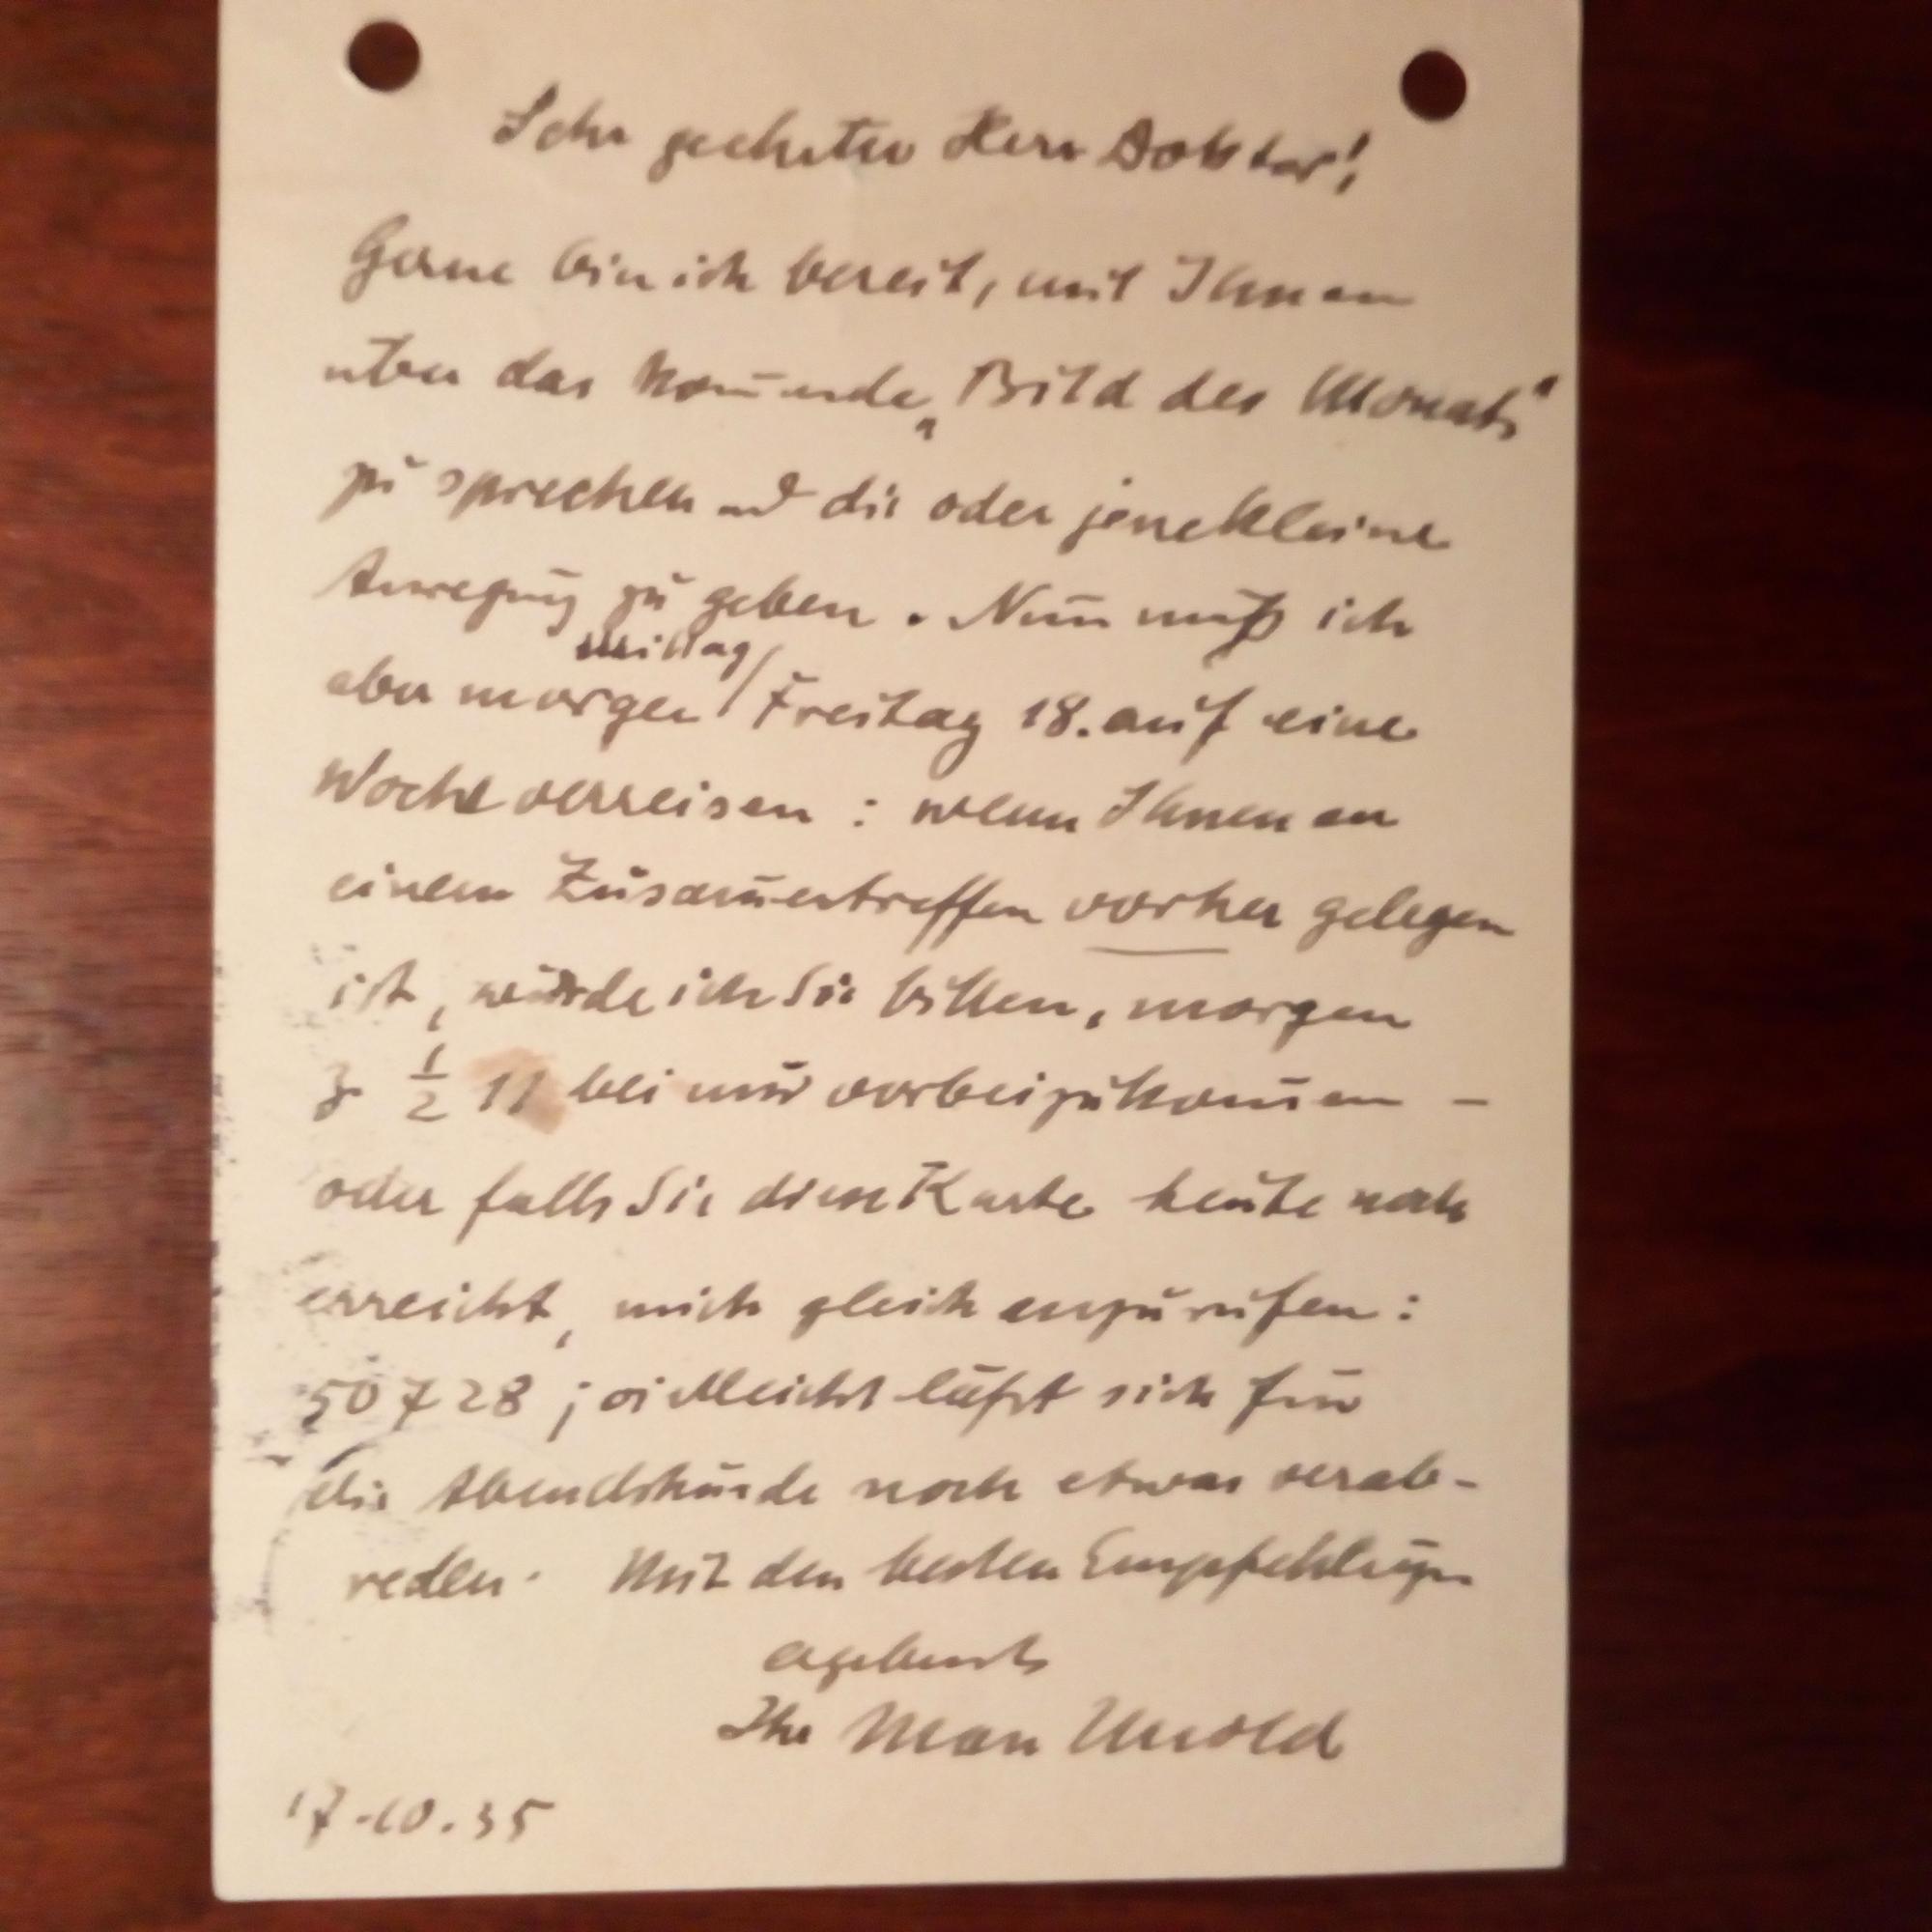 Sehr geehrter Herr Doktor!
Gerne bin ich bereit, mit Ihnen
über das kom̅ende „Bild des Monats“
zu sprechen und die oder jene kleine
Anregung zu geben. Nun muß ich
mittag
aber morgen / Freitag 18. auf eine
Woche verreisen: wenn Ihnen an
einem Zusam̅entreffen vorher gelegen
ist, würde ich Sie bitten, morgen
½ 11 bei mir vorbeizukom̅en –
oder falls Sie diese Karte heute noch
erreicht, mich gleich anzurufen:
50728; vielleicht läßt sich für
die Abendstunde noch etwas verab-
reden. Mit den besten Empfehlungen
ergebenst
Ihr Max Unold
17.10.35